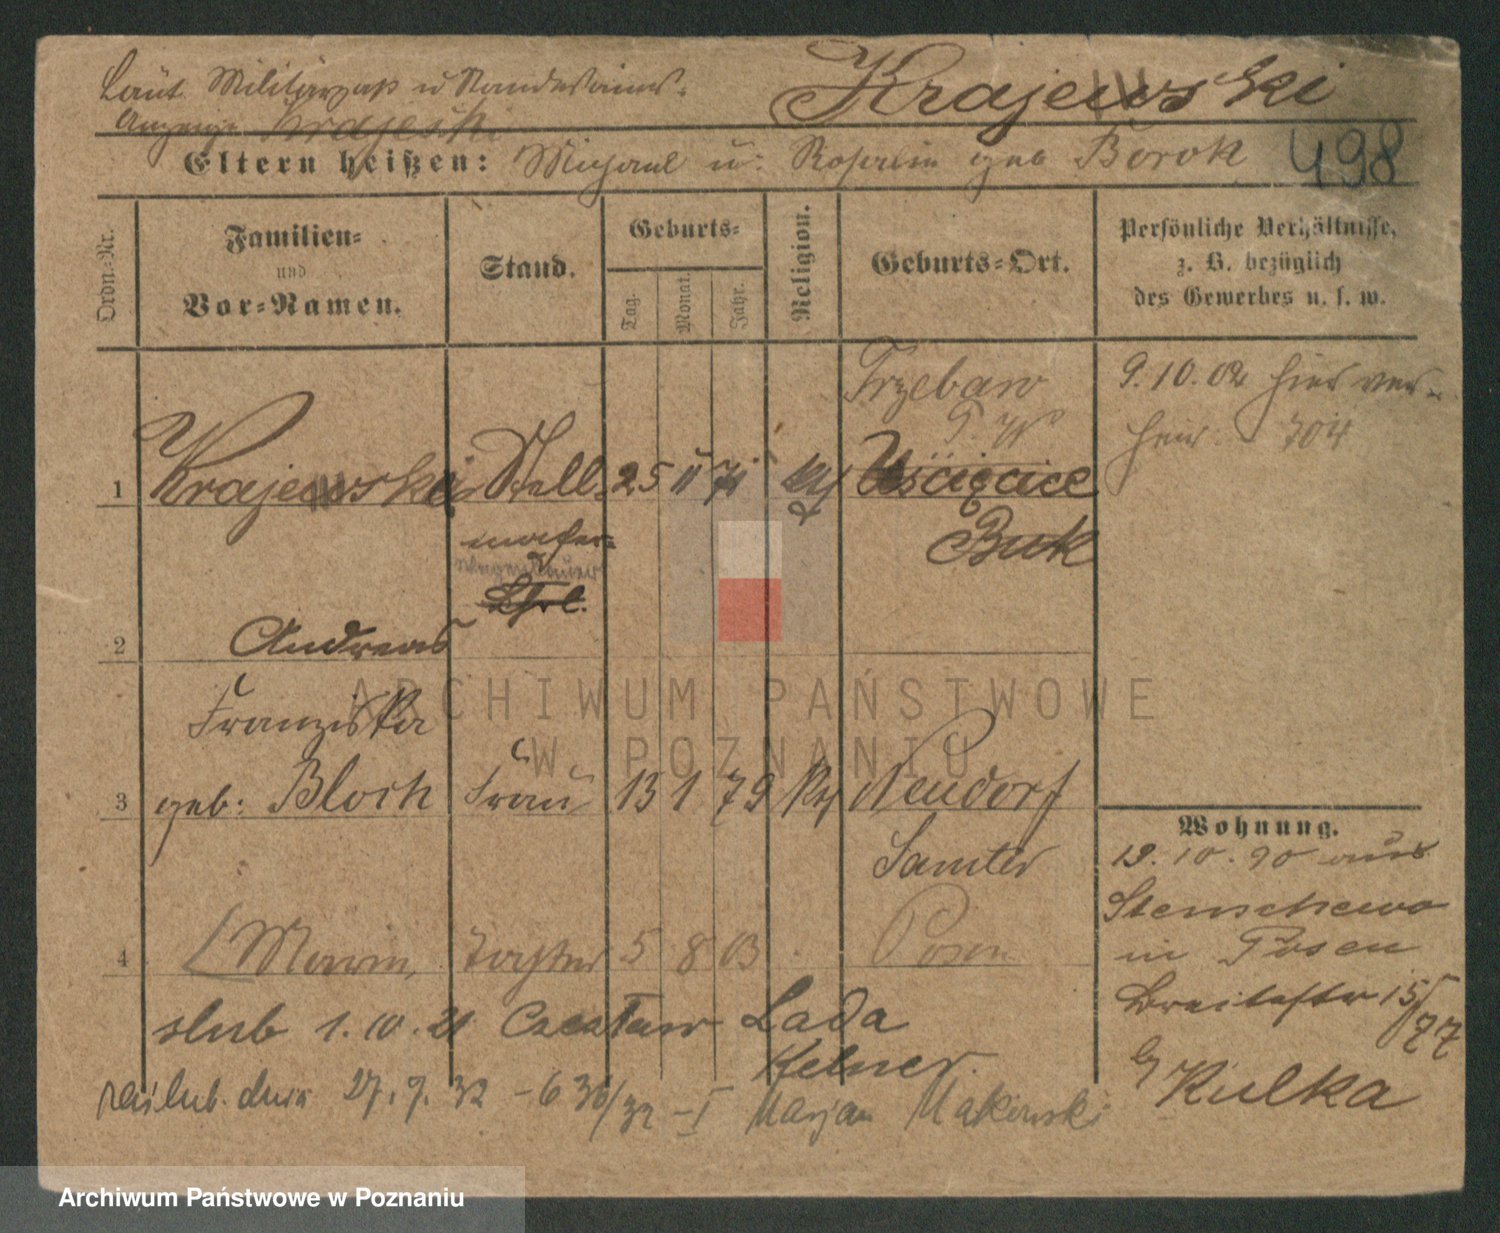 Laut Militärpaß u Standesamts-
Anzeige Krajeski
Krajewski
Eltern heißen: Michael u: Rosalie geb Borok
498
Ordn.-Nr.
Familien-
und
Vor-Namen.
Stand.
Geburts-
Tag.
Monat.
Jahr.
Religion.
Geburts-Ort.
Persönliche Verhältnisse,
z. B. bezüglich
des Gewerbes u. s. w.
1 Krajewski Stell- 25 11 71 kth
Trzebaw
P. W.
Uścięcice
Buk
macher
9.10.02 hier ver-
heir. 704
2 Andreas
Franziska
3 geb: Bloch Frau 13 1 79 kth Neudorf
Samter
4 Marie, Tochter 5 8 03 Posen
ślub 1.10.21 Czesław Lada
Kelner.
zaślub. dnia 27.9.32 - 636/32 - I Marjan Makowski
Wohnung.
19.10.90 aus
Stenschewo
in Posen
Breitestr 15/77
b/ Kulka
ARCHIWUM PAŃSTWOWE
W POZNANIU
Archiwum Państwowe w Poznaniu